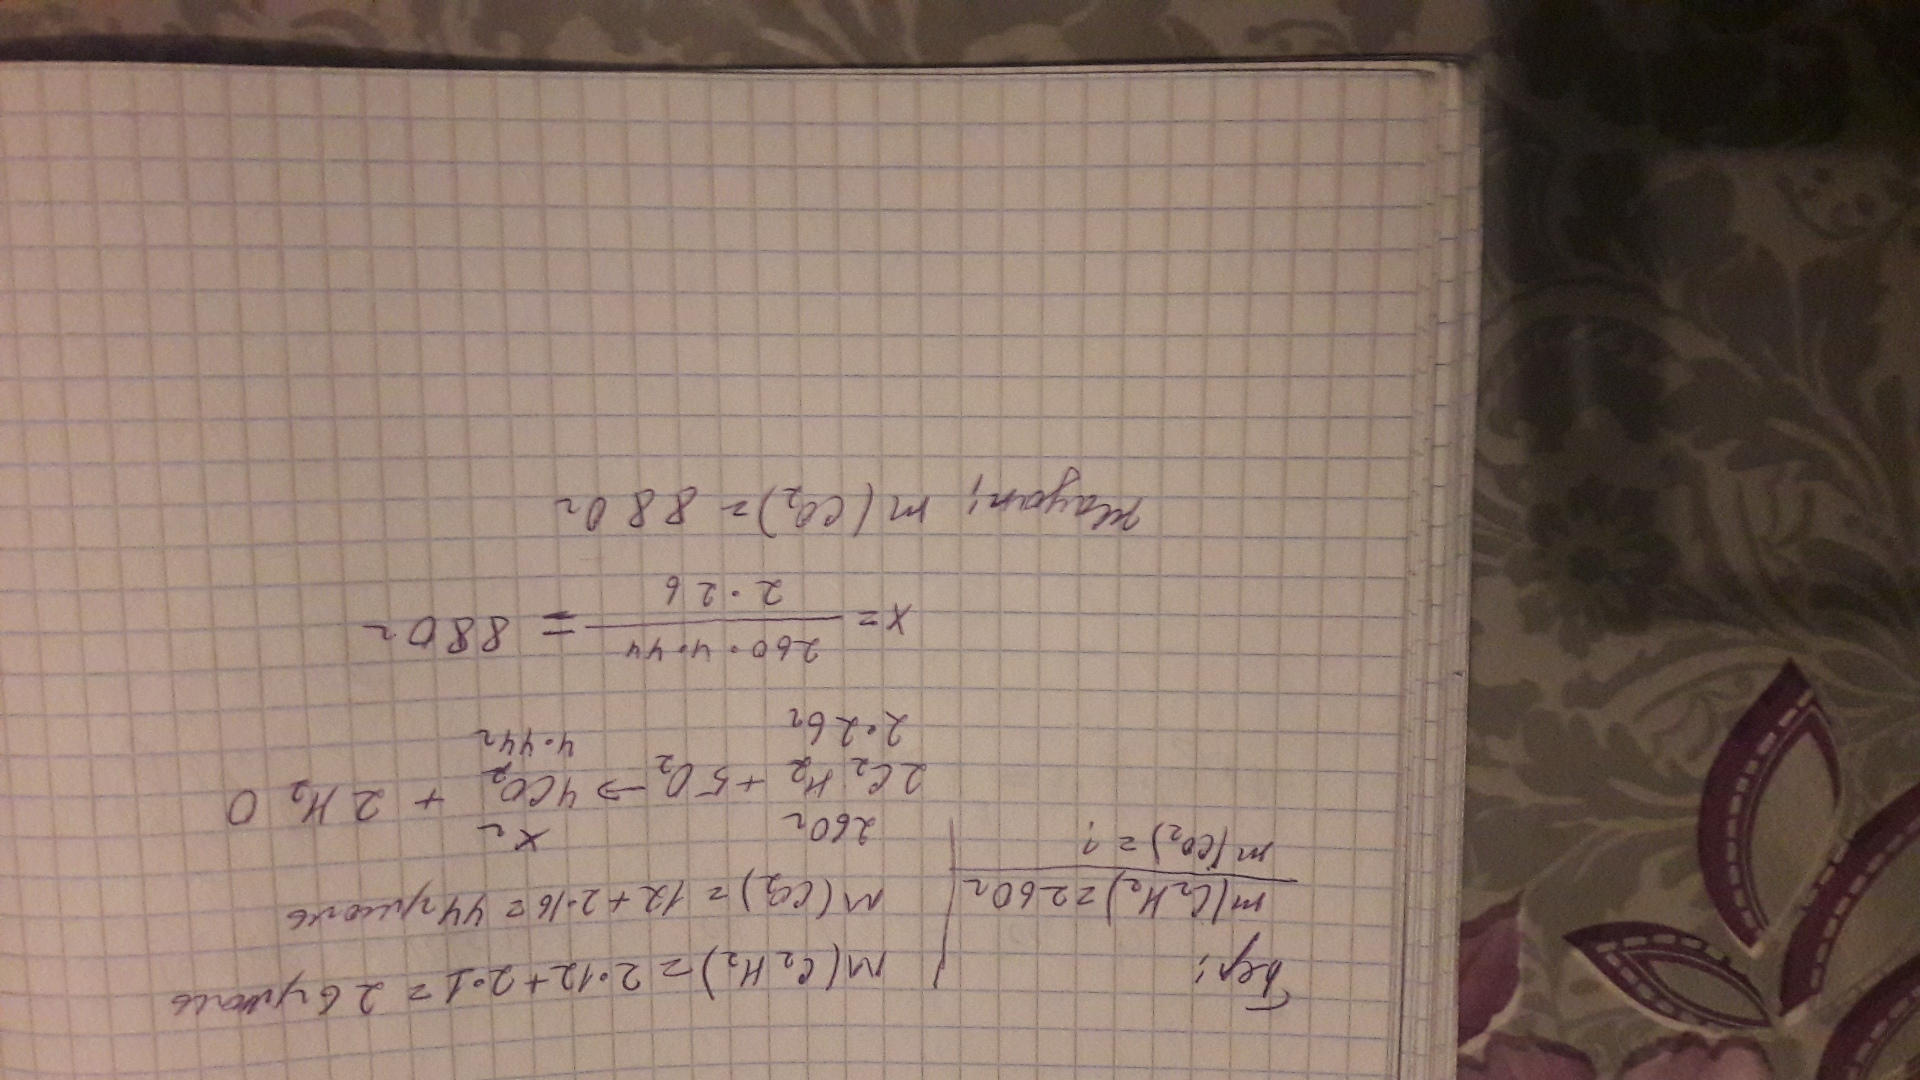 Бер:
m(C₂H₂)=260г
m(CO₂)=?
M(C₂H₂)=2·12+2·1=26г/моль
M(CO₂)=12+2·16=44г/моль
260г xг
2C₂H₂+5O₂→4CO₂+2H₂O
2·26г 4·44г
x=260·4·44/2·26=880г
жауап; m(CO₂)=880г